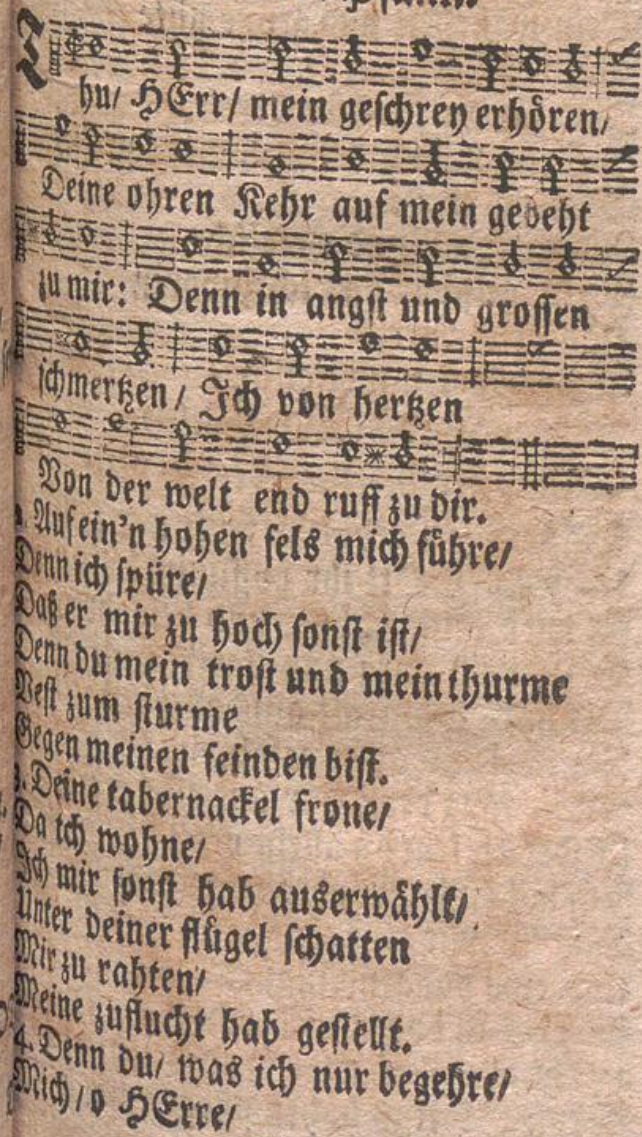 Thu/ HErr/ mein geschrey erhören/
Deine ohren Kehr auf mein gebeht
zu mir: Denn in angst und grossen
schmertzen/ Ich von hertzen
Von der welt end ruff zu dir.
2. Auf ein'n hohen fels mich führe/
Denn ich spüre/
Daß er mir zu hoch sonst ist/
Denn du mein trost und mein thurme
Vest zum sturme
Gegen meinen feinden bist.
3. Deine tabernackel frone/
Da ich wohne/
Ich mir sonst hab auserwählt/
Unter deiner flügel schatten
Mir zu rahten/
Meine zuflucht hab gestellt.
4. Denn du/ was ich nur begehre/
Mich/ o HErre/